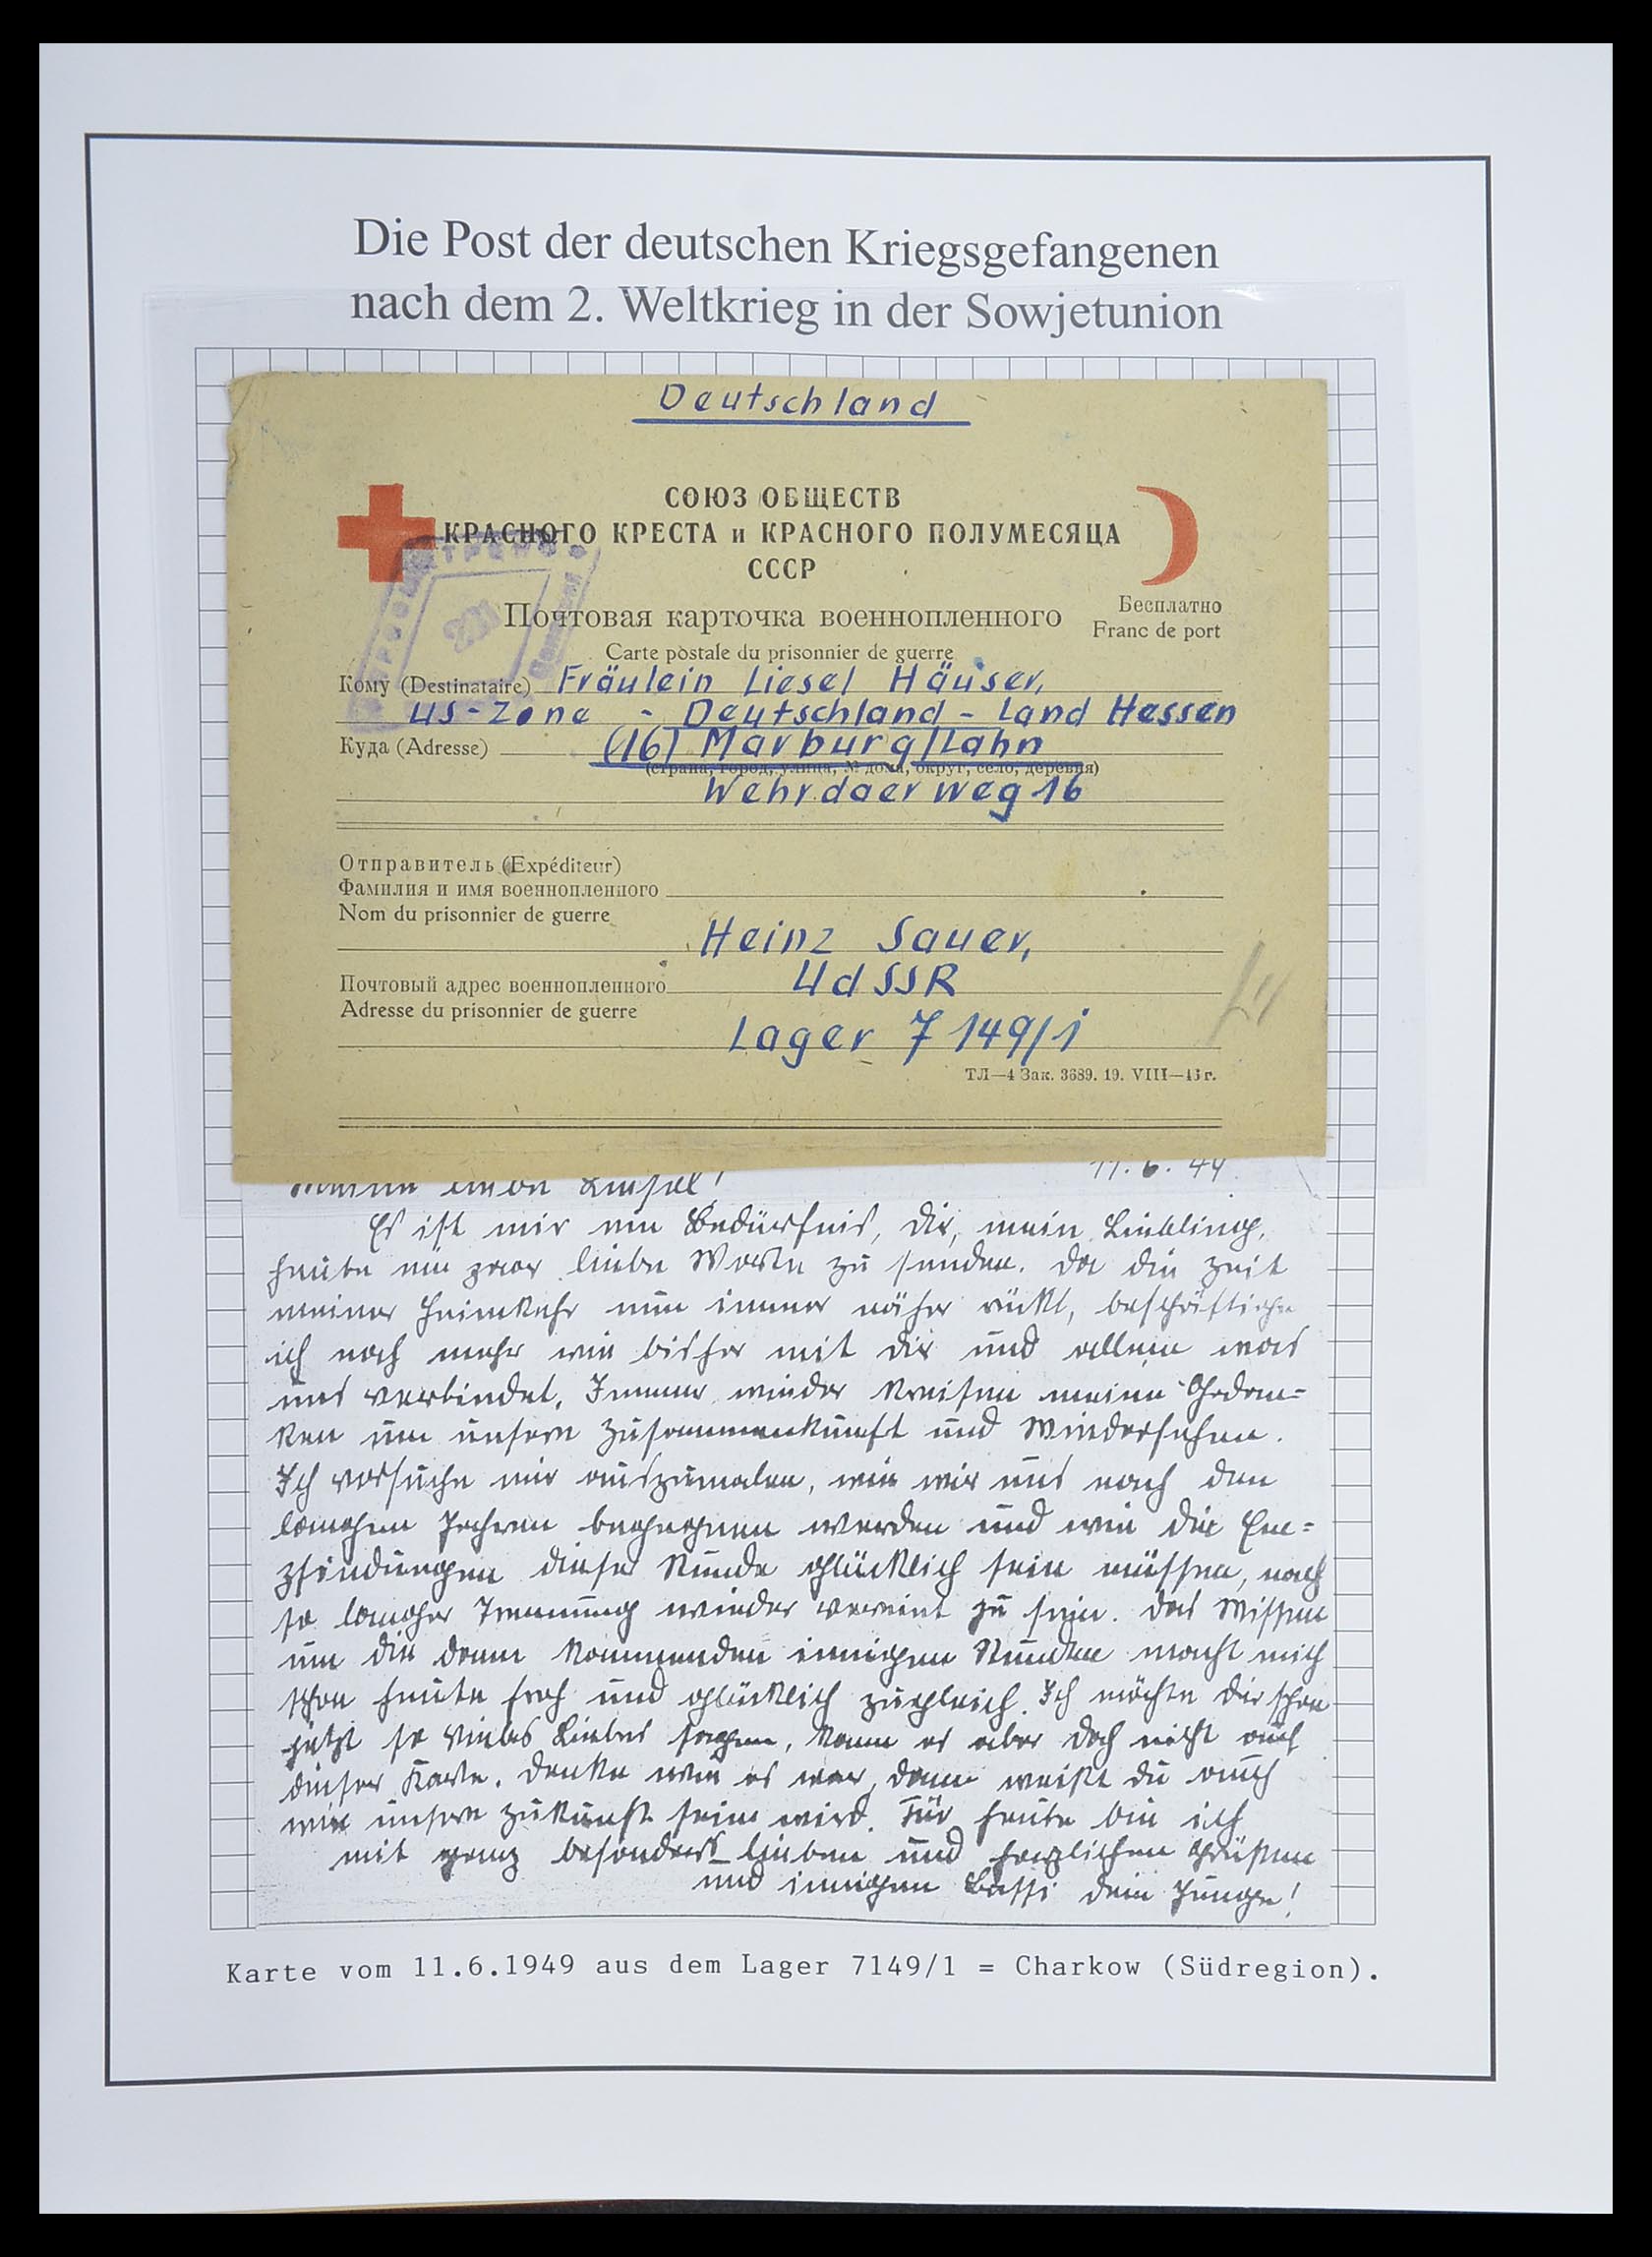 Die Post der deutschen Kriegsgefangenen
nach dem 2. Weltkrieg in der Sowjetunion
Deutschland
СОЮЗ ОБЩЕСТВ
КРАСНОГО КРЕСТА и КРАСНОГО ПОЛУМЕСЯЦА
СССР
Почтовая карточка военнопленного
Бесплатно
Franc de port
Carte postale du prisonnier de guerre
Кому (Destinataire) Fräulein Liesel Häuser,
US-Zone - Deutschland - Land Hessen
Куда (Adresse) (16) Marburg/Lahn
(страна, город, улица, № дома, округ, село, деревня)
Wehrdaer Weg 16
Отправитель (Expéditeur)
Фамилия и имя военнопленного
Nom du prisonnier de guerre
Heinz Sauer,
Почтовый адрес военнопленного UdSSR
Adresse du prisonnier de guerre
Lager 7149/1
ТЛ—4 Зак. 3689. 19. VIII—43 г.
11. 6. 49.
Meine liebe Liesel!
Es ist mir ein Bedürfnis, Dir, mein Liebling,
heute ein paar liebe Worte zu senden. Da die Zeit
meiner Heimkehr nun immer näher rückt, beschäftige
ich mich mehr wie bisher mit Dir und allem was
uns verbindet. Immer wieder kreisen meine Gedan=
ken um unsere Zusammenkunft und Wiedersehen.
Ich versuche mir auszumalen, wie wir uns nach den
langen Jahren begegnen werden und wie die Em=
pfindungen dieser Stunde glücklich sein müssen, nach
so langer Trennung wieder vereint zu sein. Das Wissen
um die dann kommenden innigen Stunden macht mich
schon heute froh und glücklich zugleich. Ich möchte Dir schon
jetzt so vieles Liebes sagen, kann es aber doch nicht auf
dieser Karte. Denke wie es war, dann weißt Du auch
wie unsere Zukunft sein wird. Für heute bin ich
mit ganz besonders lieben und herzlichen Grüßen
und innigen Bussi Dein Junge!
Karte vom 11.6.1949 aus dem Lager 7149/1 = Charkow (Südregion).